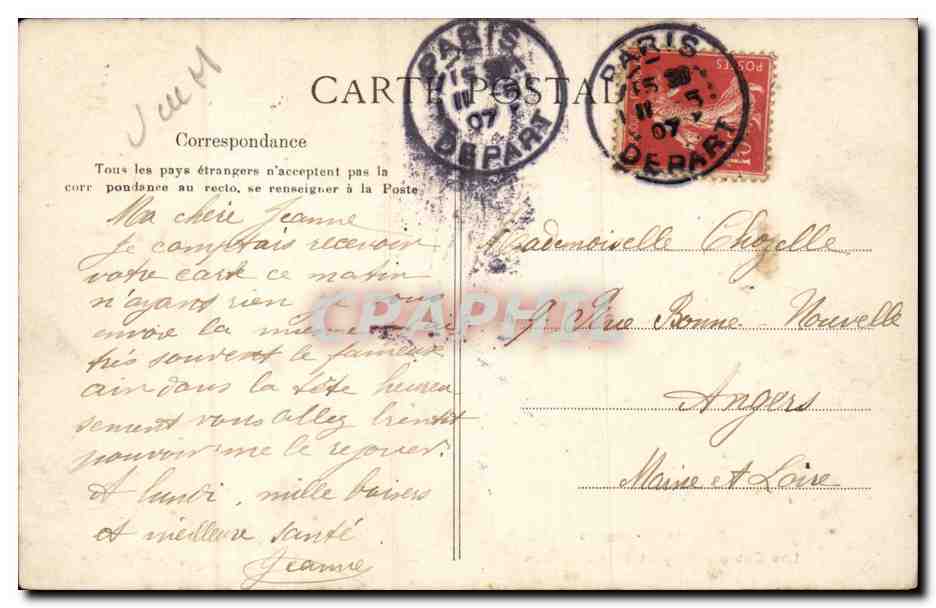 CARTE POSTALE
PARIS
15
11 5
07
DEPART
PARIS
15
11 5
07
DEPART
POSTES
10
Correspondance
Tous les pays étrangers n'acceptent pas la
corr pondance au recto, se renseigner à la Poste
Ma chère Jeanne
Je comptais recevoir
votre carte ce matin
n'ayans rien je vous
envoie la mienne
très souvent le fameux
air dans la tête heureu
sement vous allez bientôt
pouvoir me le rejouer.
A lundi, mille baisers
et meilleure santé
Jeanne
Mademoiselle Chozelle
9 Rue Bonne-Nouvelle
Angers
Maine et Loire
CPAPHIL